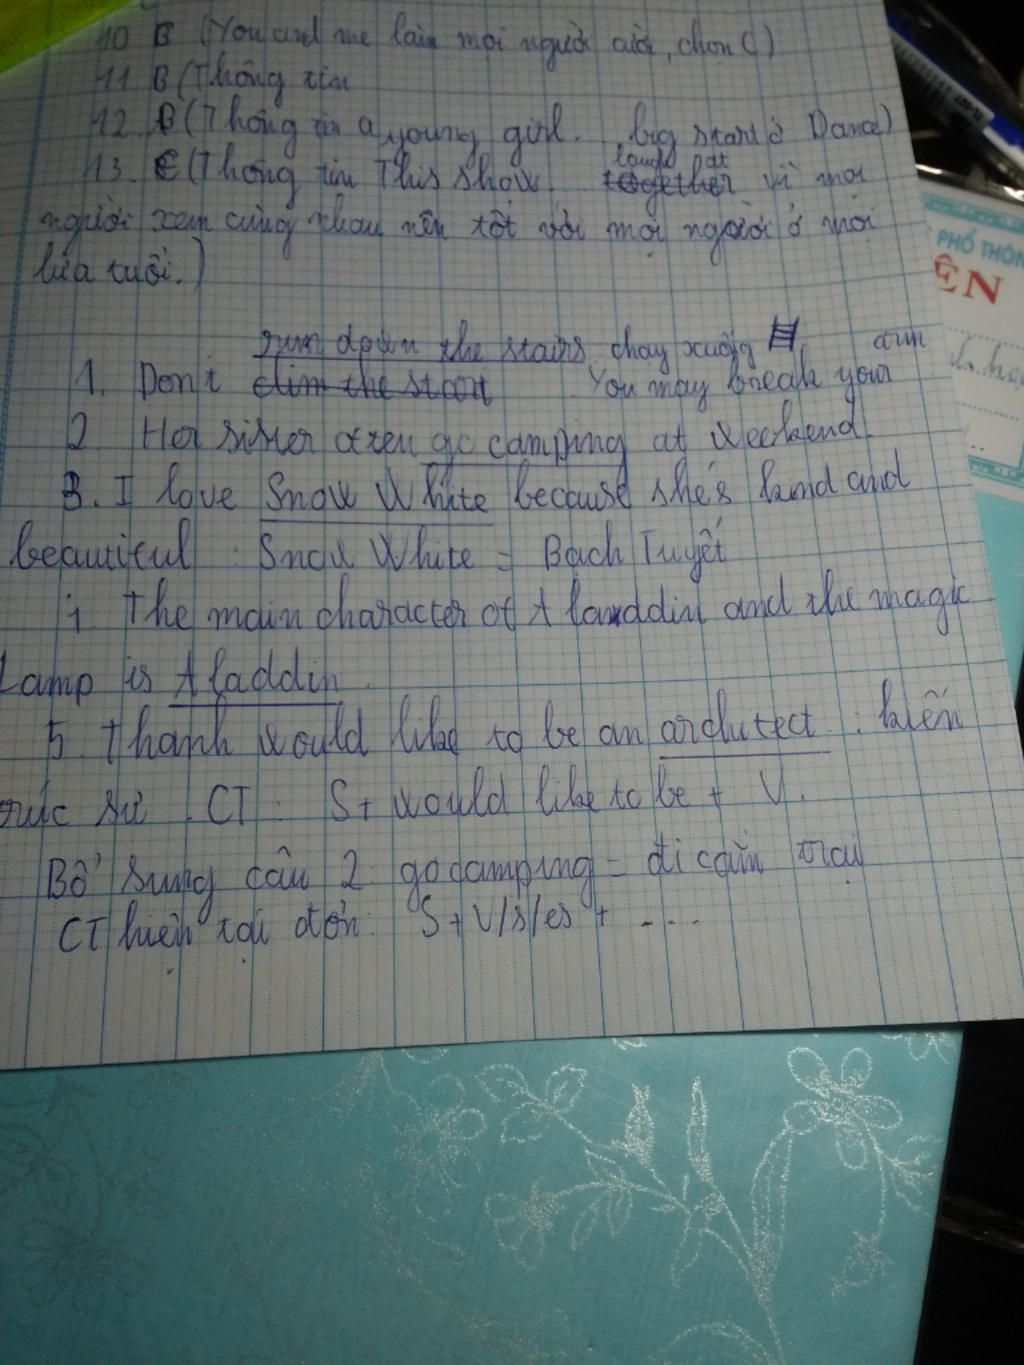 10 B (You and me làm mọi người cười, chọn C)
11 B (Thông tin
12. B (Thông tin a young girl. big start ở Dance)
13. C (Thông tin This show laugh at together vì mọi
người xem cùng nhau nên tốt với mọi người ở mọi
lứa tuổi.)
run down the stairs chạy xuống
1. Don't clim the start You may break your arm
2 Her sister often go camping at weekend.
3. I love Snow White because she's kind and
beautiful : Snow White = Bạch Tuyết
The main character of Aladdin and the magic
Lamp is Aladdin
5. Thanh would like to be an architect : kiến
trúc sư . CT : S + would like to be + V.
Bổ sung câu 2: go camping = đi cắm trại
CT hiện tại đơn: S + V/s/es + ....
PHỔ THÔN
ÊN